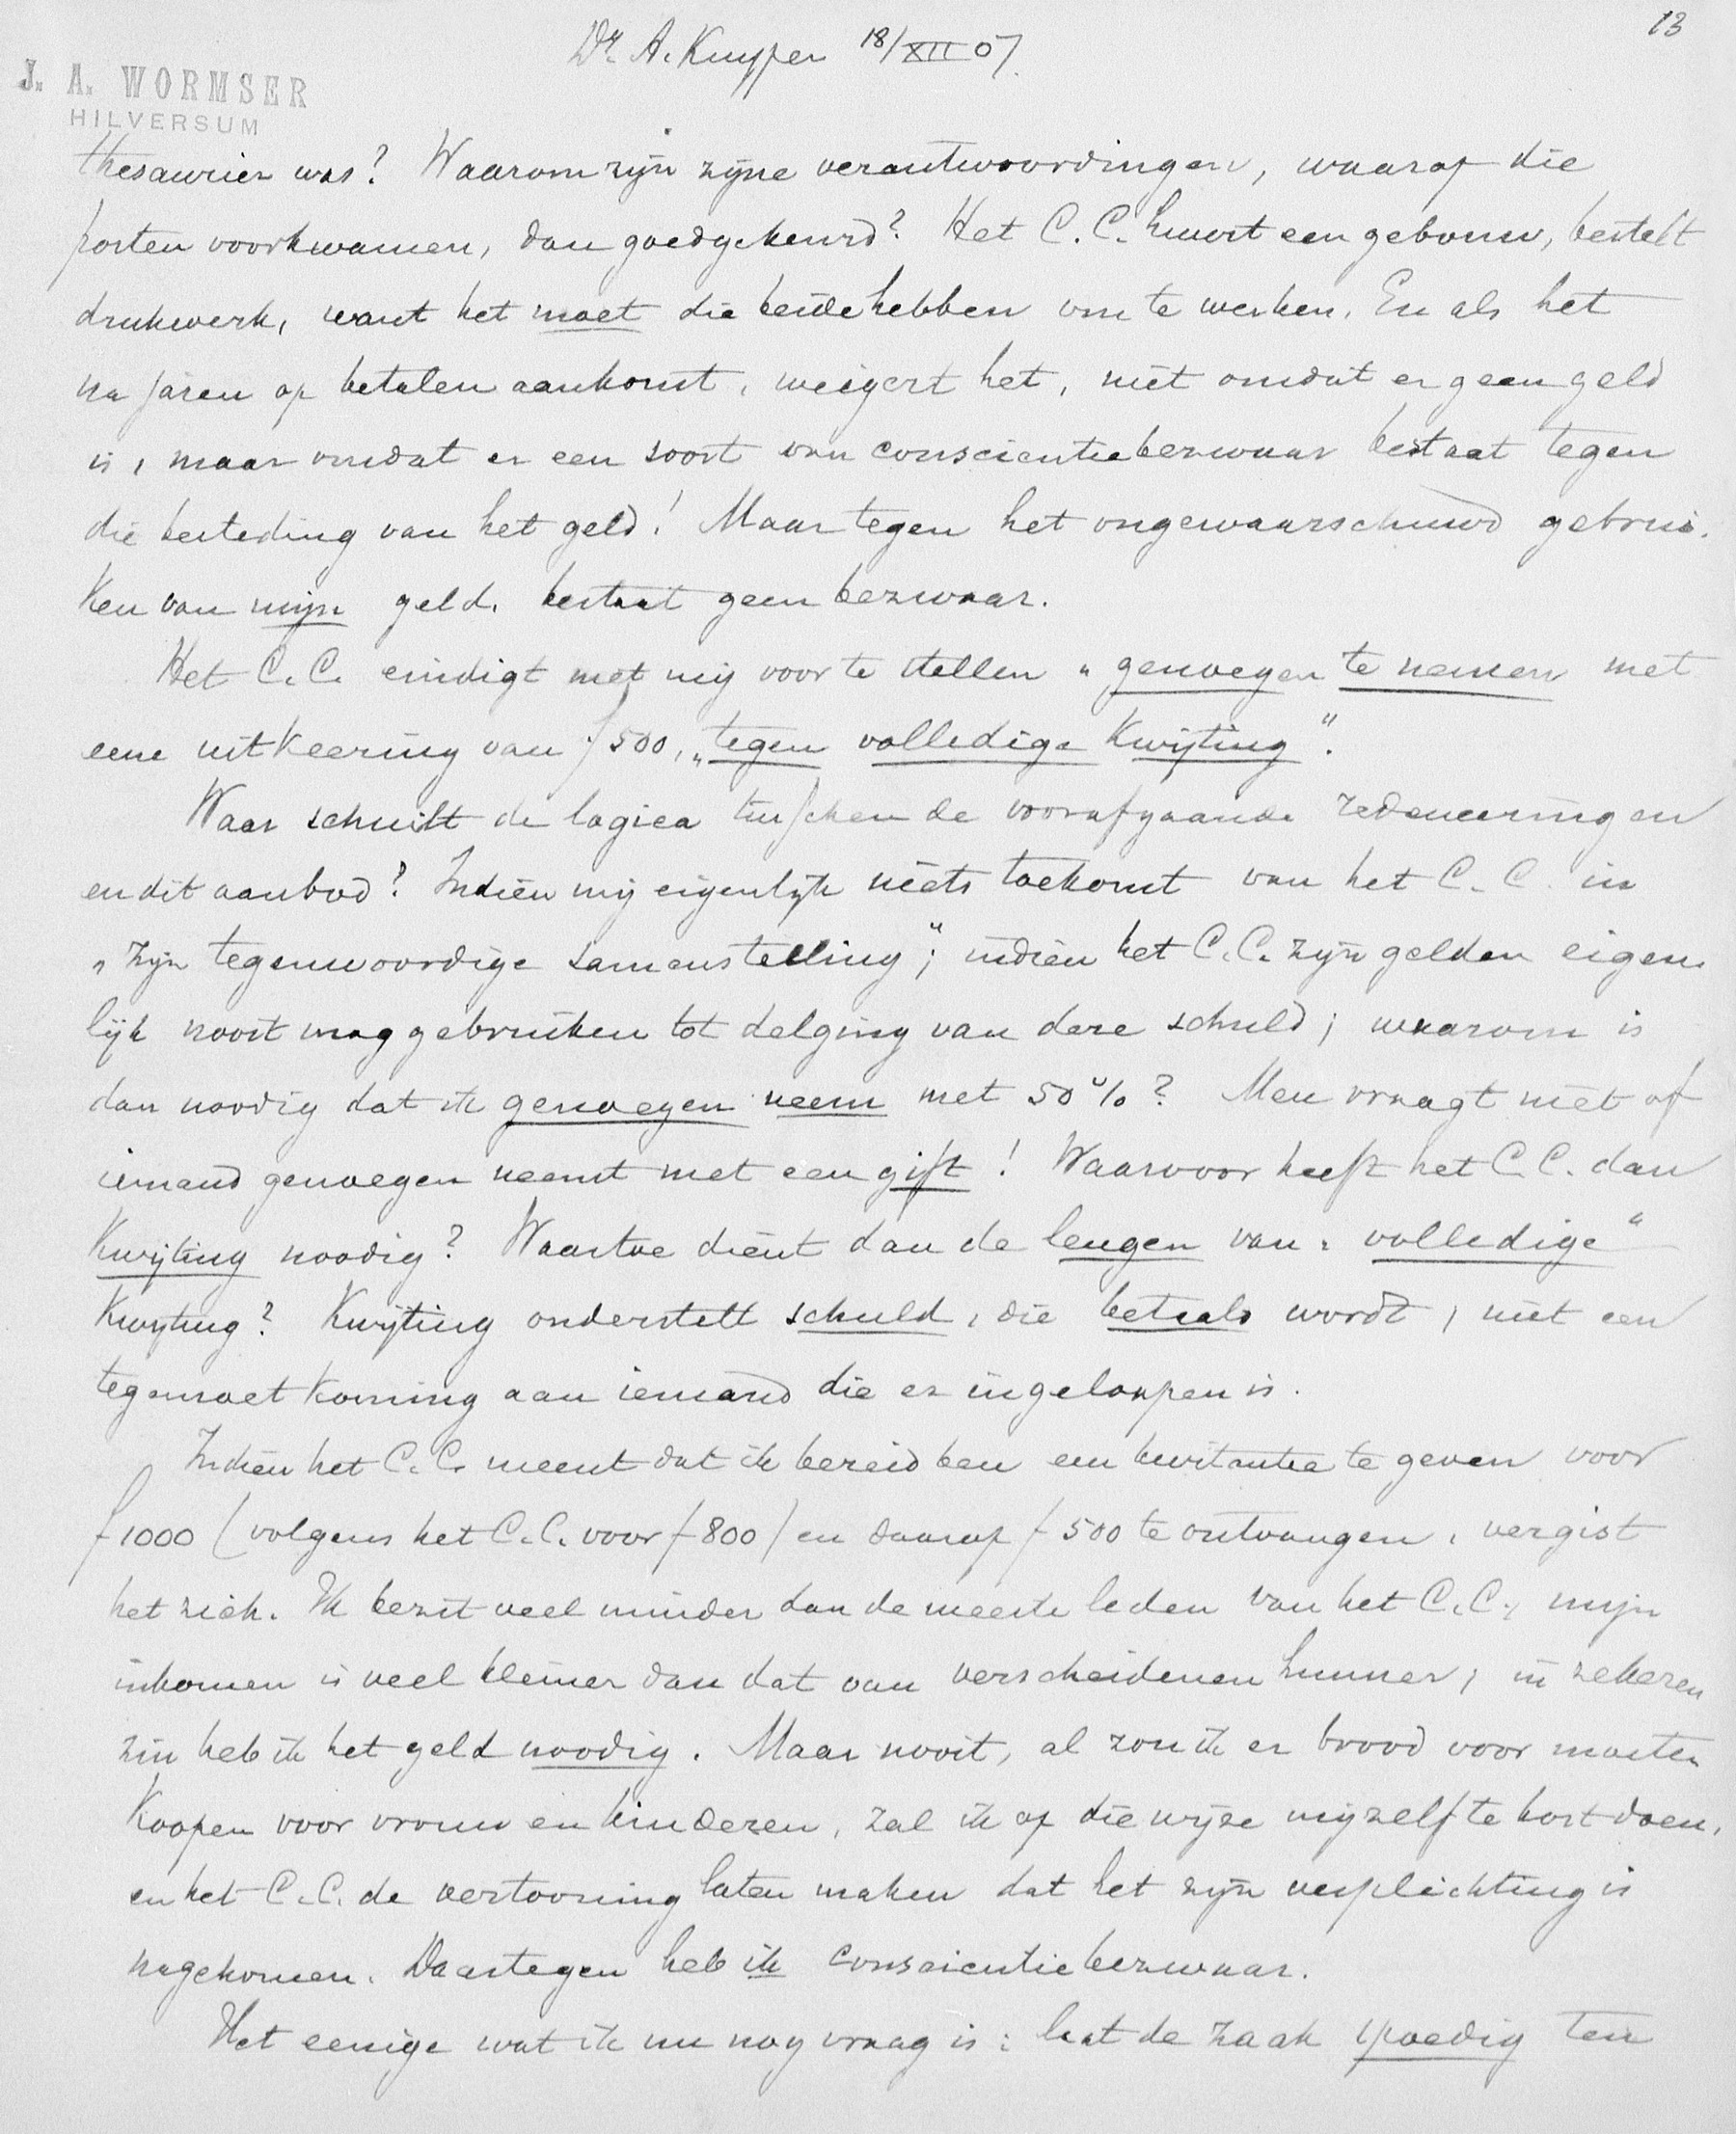 13
Dr. A. Kuyper 18/XII 07.
J. A. WORMSER
HILVERSUM
thesaurier was? Waarom zijn zijne verantwoordingen, waarop die
posten voorkwamen, dan goedgekeurd? Het C.C. huurt een gebouw, bestelt
drukwerk, want het moet die beide hebben om te werken. En als het
na jaren op betalen aankomt, weigert het, niet omdat er geen geld
is, maar omdat er een soort van conscientiebezwaar bestaat tegen
die besteding van het geld! Maar tegen het ongewaarschuwd gebrui-
ken van mijn geld, bestaat geen bezwaar.
Het C.C. eindigt met mij voor te stellen „genoegen te nemen met
eene uitkeering van f 500, „tegen volledige kwijting".
Waar schuilt de logica tusschen de voorafgaande redeneeringen
en dit aanbod? Indien mij eigenlijk niets toekomt van het C.C. in
„zijn tegenwoordige samenstelling"; indien het C.C. zijn gelden eigen-
lijk nooit mag gebruiken tot delging van deze schuld; waarom is
dan noodig dat ik genoegen neem met 50%? Men vraagt niet of
iemand genoegen neemt met een gift! Waarvoor heeft het C.C. dan
kwijting noodig? Waartoe dient dan de leugen van „volledige"
kwijting? Kwijting onderstelt schuld, die betaald wordt, niet een
tegemoetkoming aan iemand die er ingeloopen is.
Indien het C.C. meent dat ik bereid ben een kwitantie te geven voor
f 1000 (volgens het C.C. voor f 800) en daarop f 500 te ontvangen, vergist
het zich. Ik bezit veel minder dan de meeste leden van het C.C., mijn
inkomen is veel kleiner dan dat van verscheidenen hunner; in zekeren
zin heb ik het geld noodig. Maar nooit, al zou ik er brood voor moeten
koopen voor vrouw en kinderen, zal ik op die wijze mijzelf te kort doen,
en het C.C. de vertooning laten maken dat het zijn verplichting is
nagekomen. Daartegen heb ik conscientiebezwaar.
Het eenige wat ik nu nog vraag is: laat de zaak spoedig ten